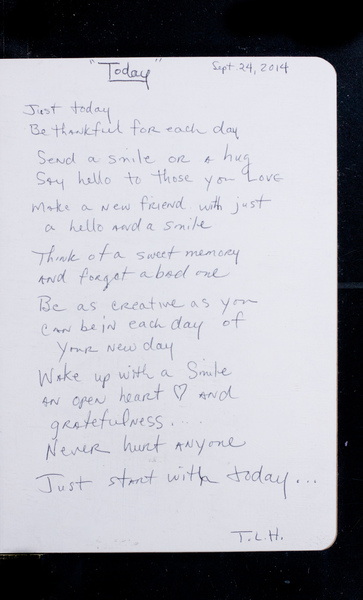 "Today" Sept 24, 2014
Just today
Be thankful for each day
Send a smile or a hug
Say hello to those you Love
Make a new friend with just
a hello and a smile
Think of a sweet memory
and forget a bad one
Be as creative as you
can be in each day of
your new day
Wake up with a Smile
an open heart ♡ and
gratefulness...
Never hurt anyone
Just start with today...
T.L.H.